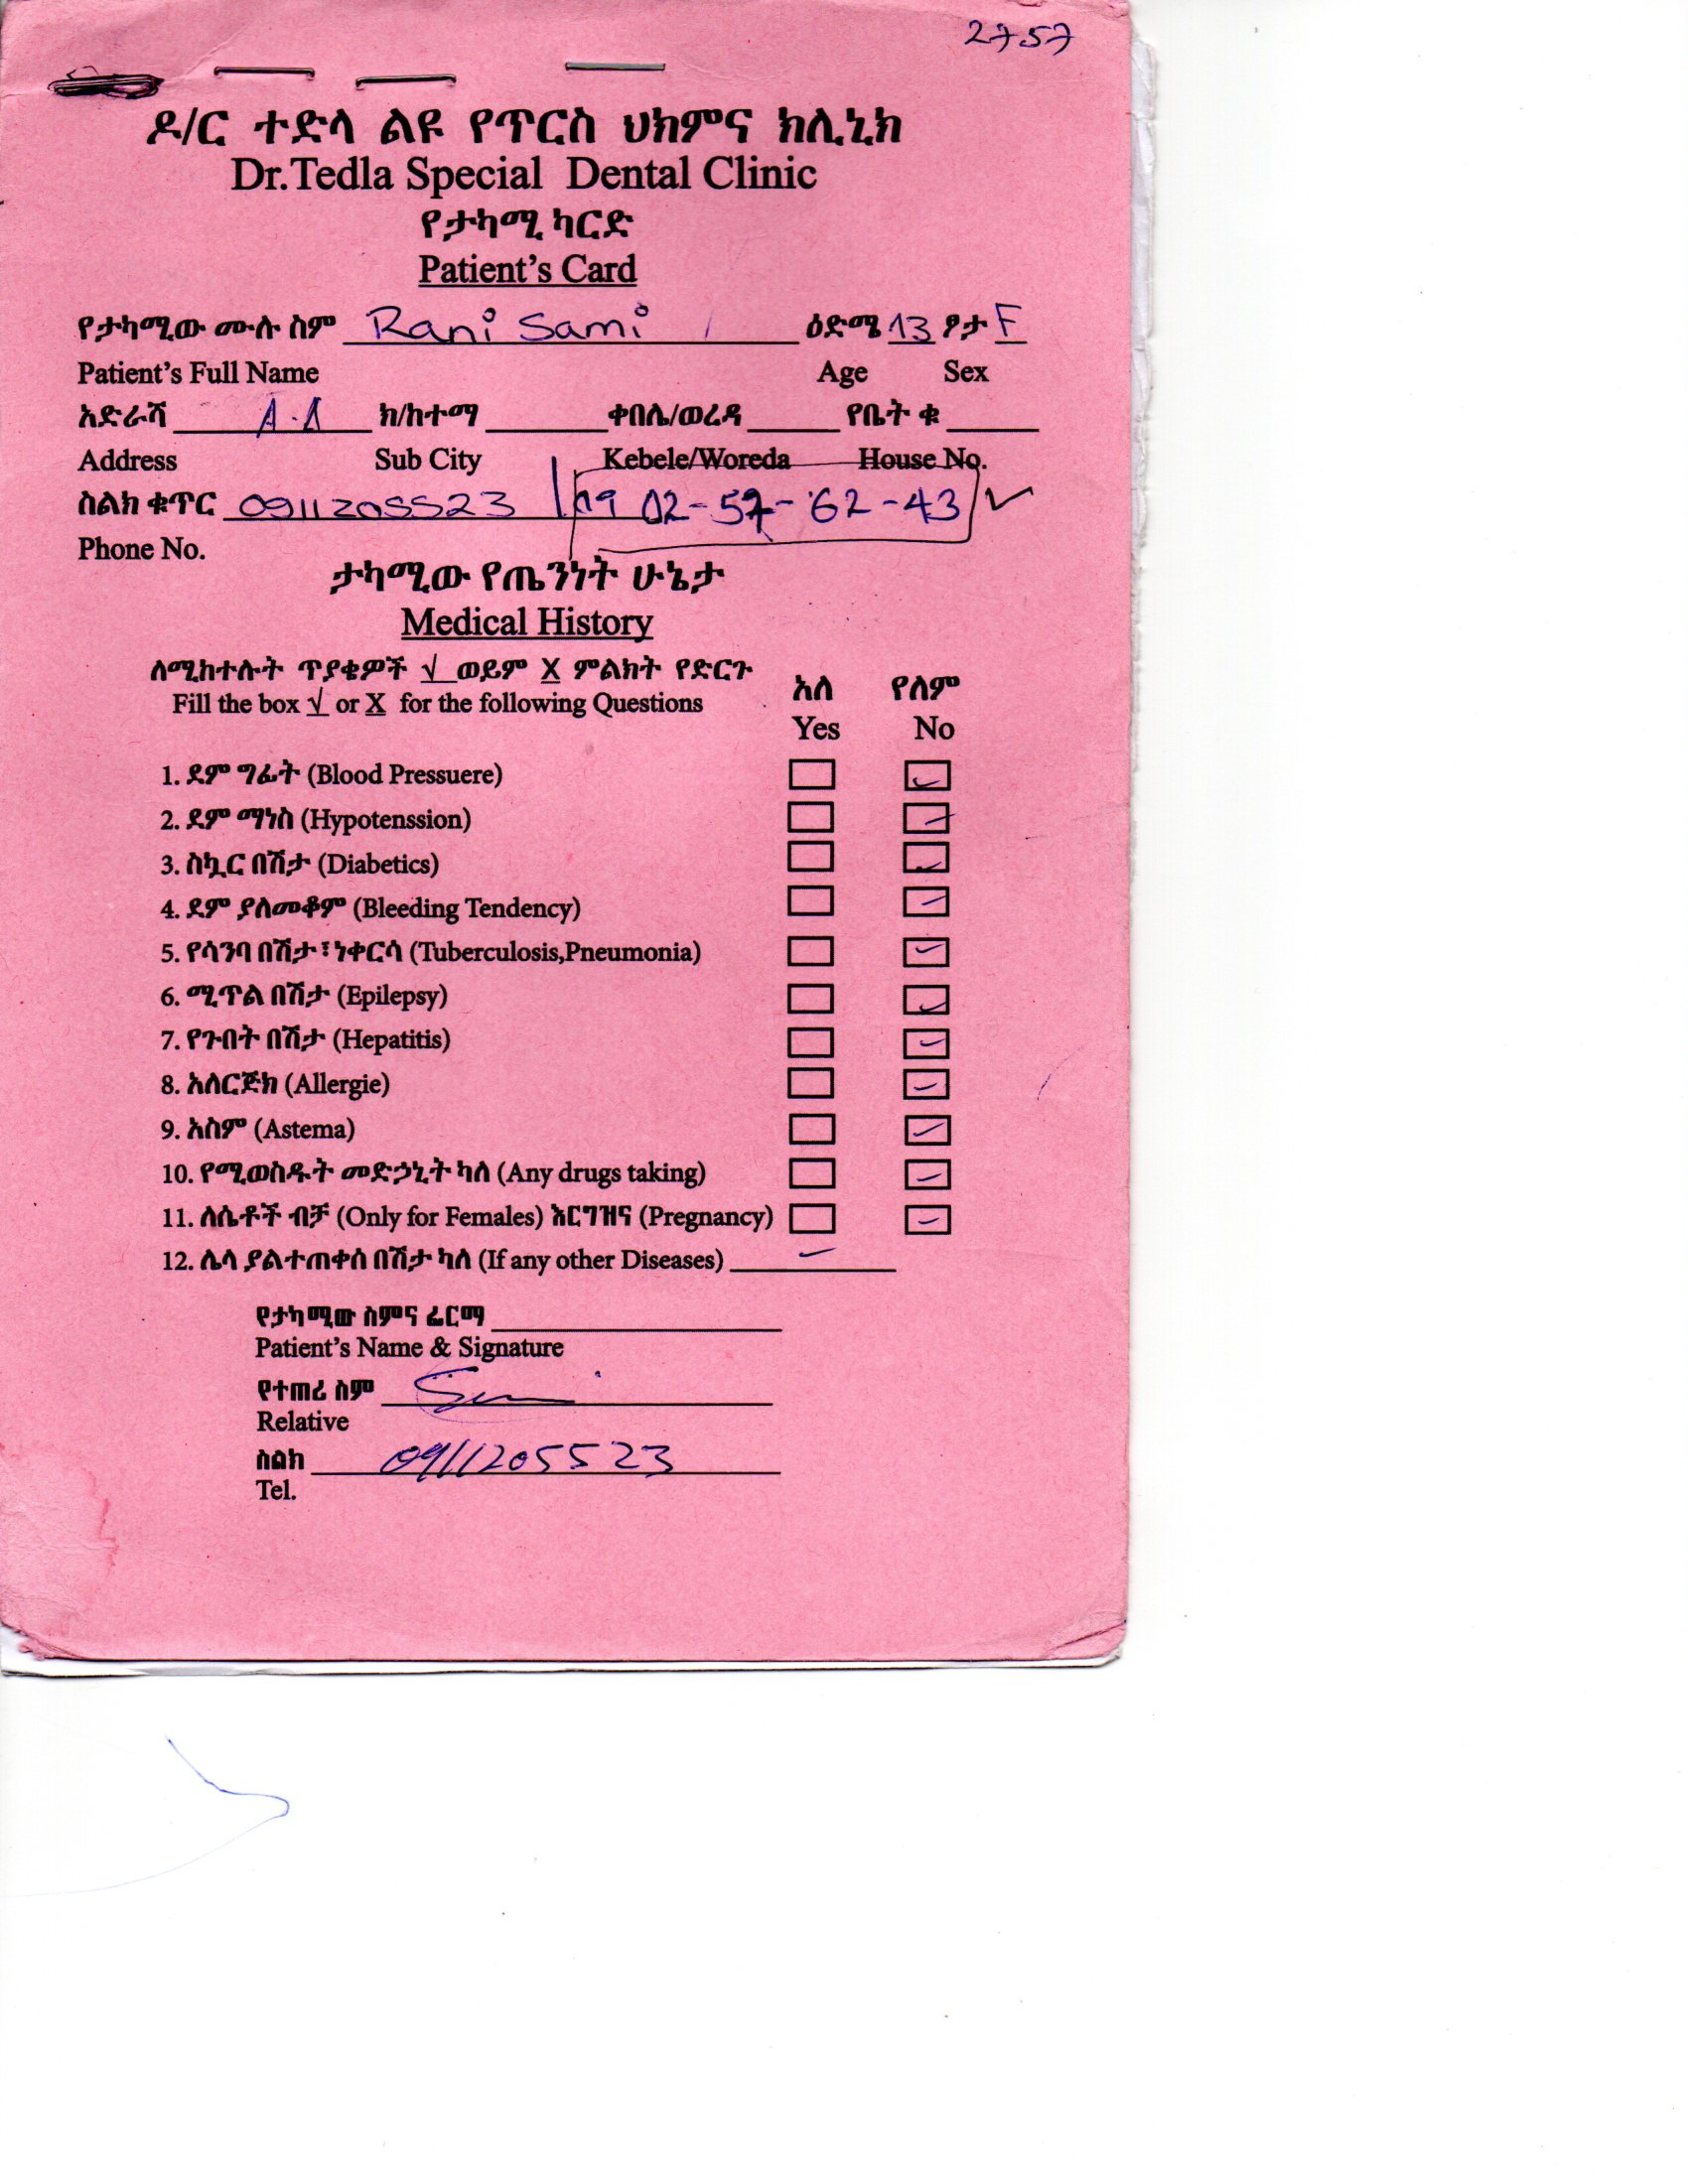 2757
ዶ/ር ተድላ ልዩ የጥርስ ህክምና ክሊኒክ
Dr.Tedla Special Dental Clinic
የታካሚ ካርድ
Patient's Card
የታካሚው ሙሉ ስም Rani Sami ዕድሜ 13 ፆታ F
Patient's Full Name Age Sex
አድራሻ A.A ክ/ከተማ ቀበሌ/ወረዳ የቤት ቁ
Address Sub City Kebele/Woreda House No.
ስልክ ቁጥር 0911205523 09 02-57-62-43 ✓
Phone No.
ታካሚው የጤንነት ሁኔታ
Medical History
ለሚከተሉት ጥያቄዎች √ ወይም X ምልክት የድርጉ
Fill the box √ or X for the following Questions
አለ የለም
Yes No
1. ደም ግፊት (Blood Pressuere) ✓
2. ደም ማነስ (Hypotenssion) ✓
3. ስኳር በሽታ (Diabetics) ✓
4. ደም ያለመቆም (Bleeding Tendency) ✓
5. የሳንባ በሽታ፣ነቀርሳ (Tuberculosis,Pneumonia) ✓
6. ሚጥል በሽታ (Epilepsy) ✓
7. የጉበት በሽታ (Hepatitis) ✓
8. አለርጅክ (Allergie) ✓
9. አስም (Astema) ✓
10. የሚወስዱት መድኃኒት ካለ (Any drugs taking) ✓
11. ለሴቶች ብቻ (Only for Females) እርግዝና (Pregnancy) ✓
12. ሌላ ያልተጠቀሰ በሽታ ካለ (If any other Diseases) ✓
የታካሚው ስምና ፊርማ
Patient's Name & Signature
የተጠሪ ስም
Relative
ስልክ 0911205523
Tel.